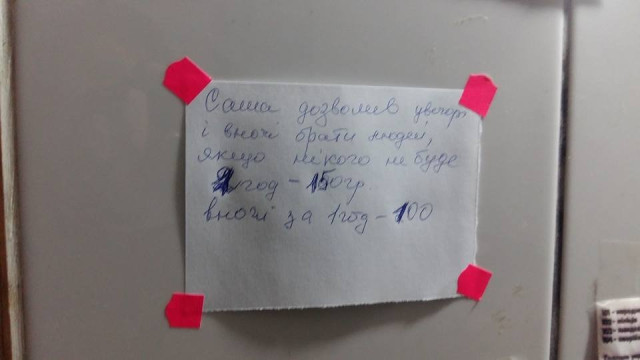 Саша дозволив увечері
і вночі брати людей,
якщо нікого не буде
1 год – 150 гр.
вночі за 1 год – 100